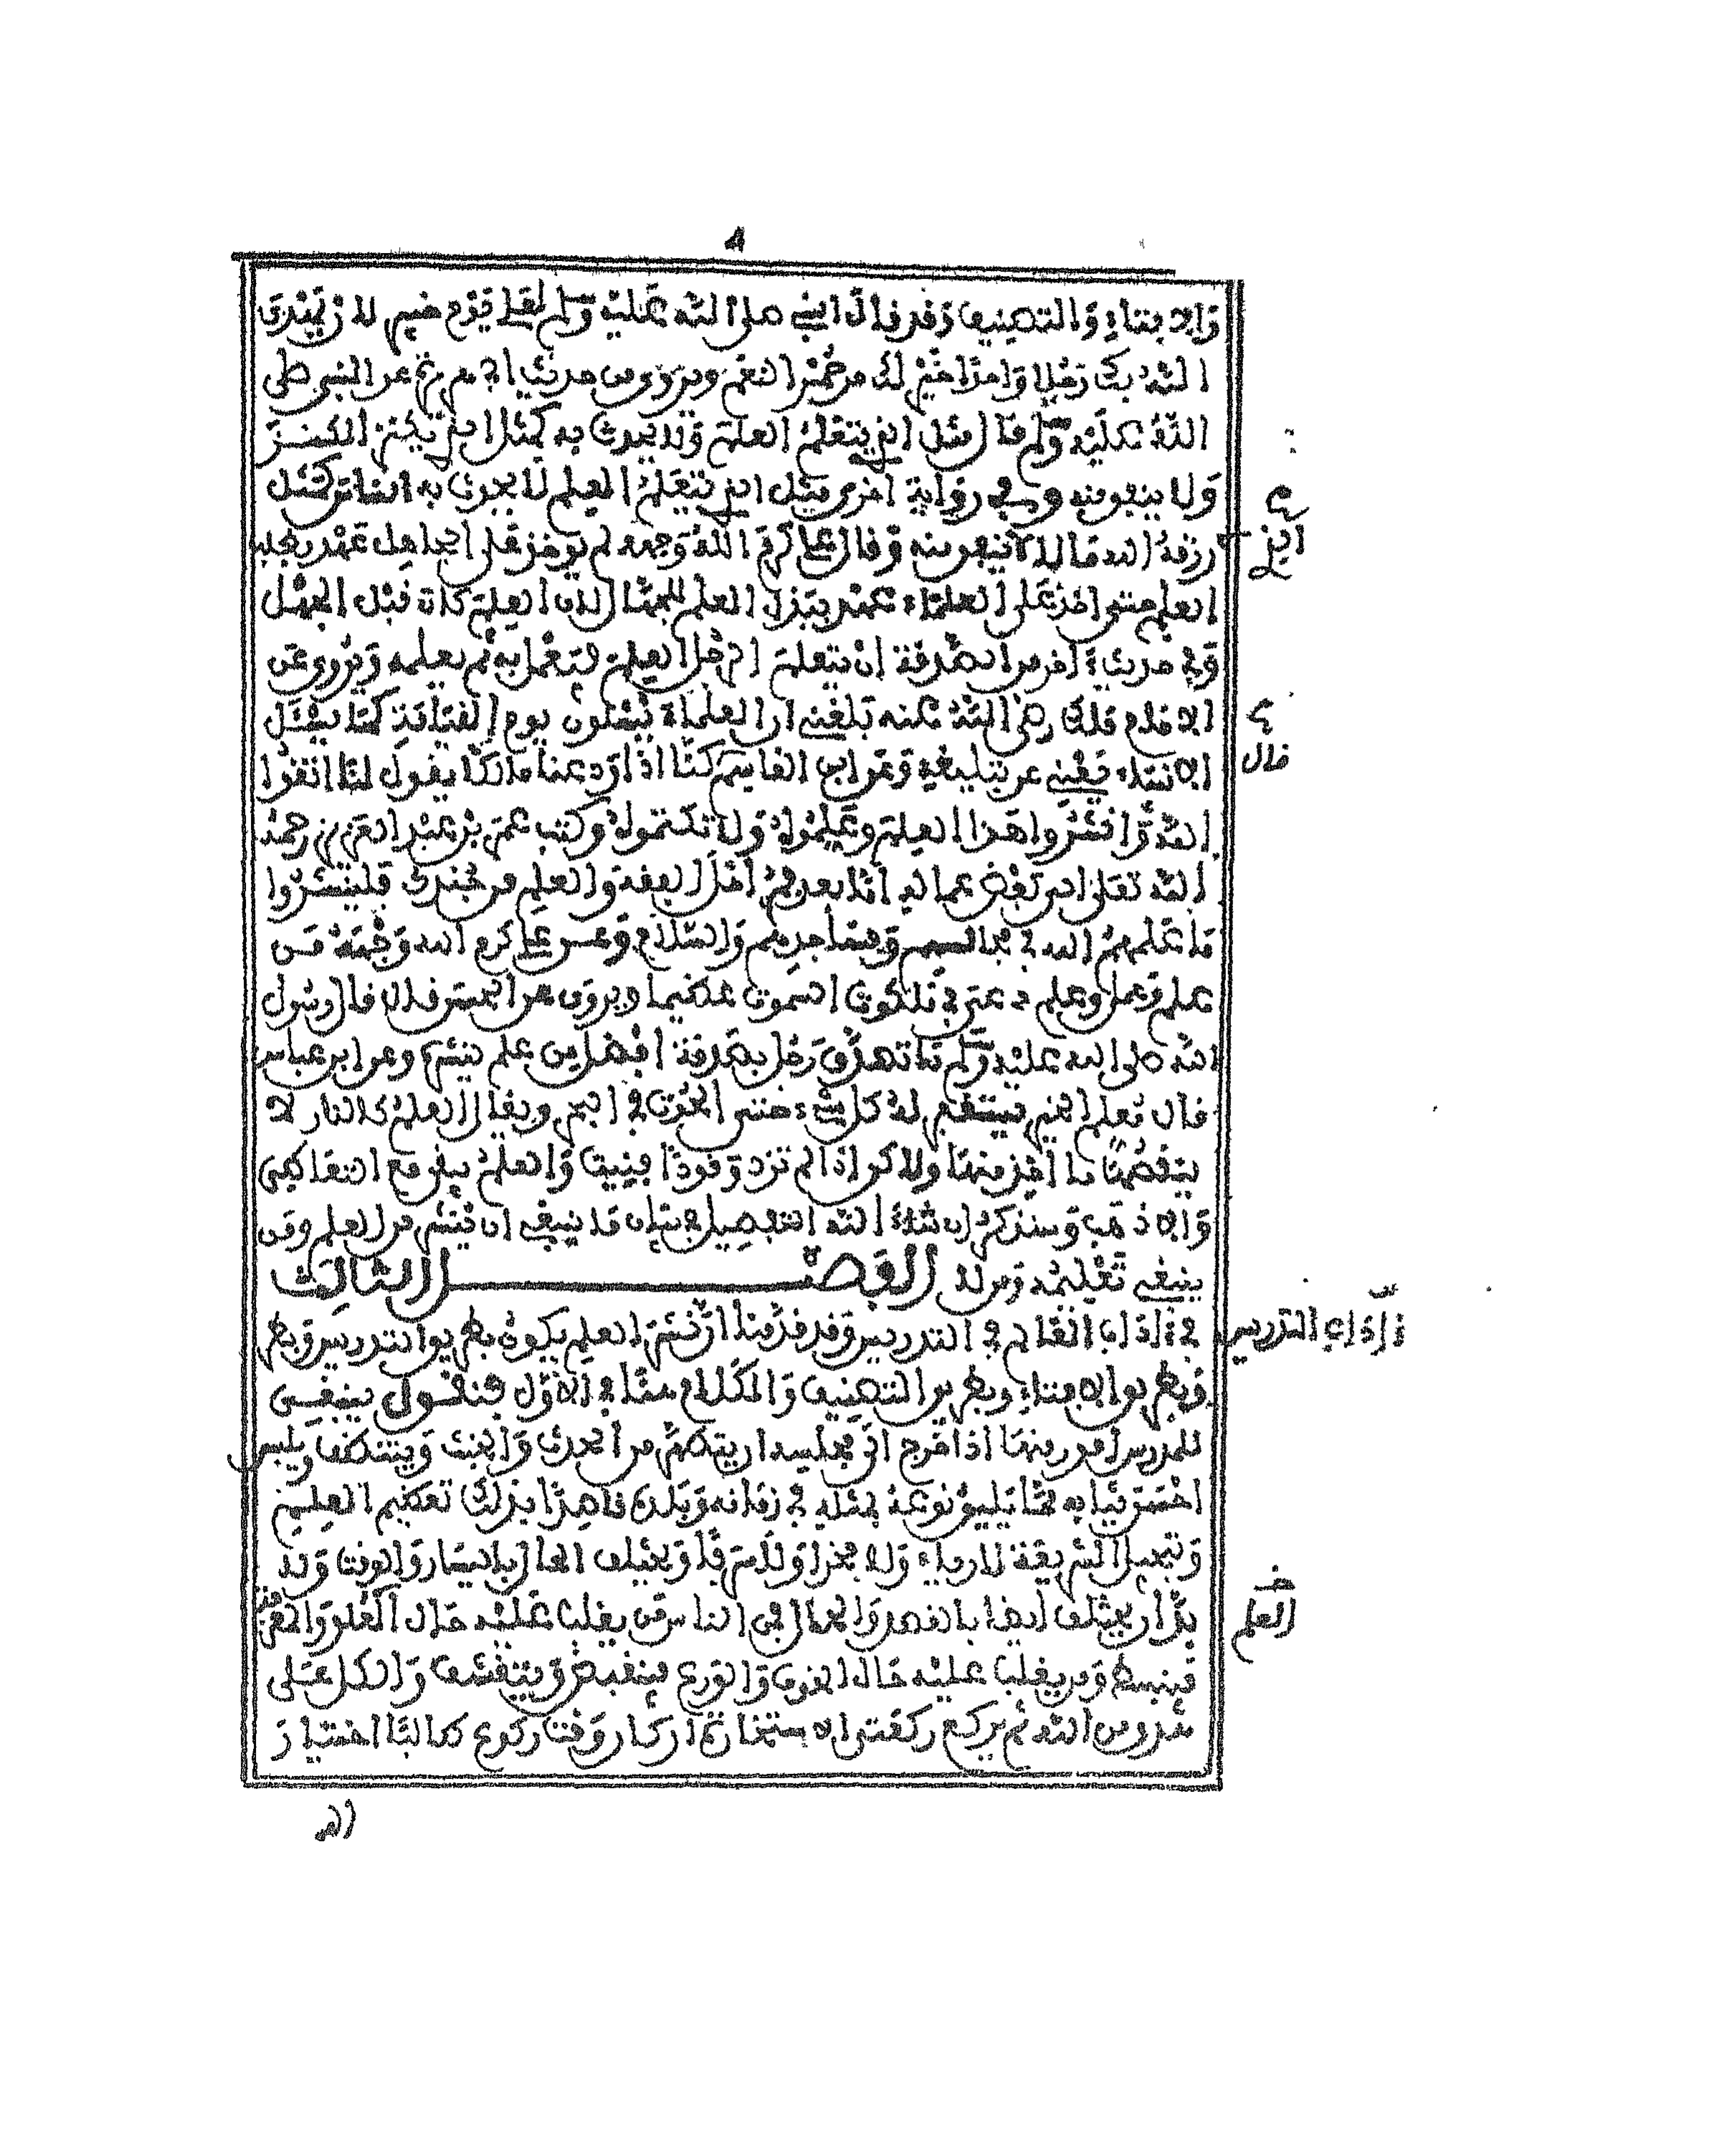 والافتاء والتصنيف وقد قال النبي صلى الله عليه وسلم لعلي يوم خيبر لان يهدي
الله بك رجلا واحدا خير لك من حمر النعم ويروى من حديث ابي هريرة عن النبي صلى
الله عليه وسلم قال مثل الذي يتعلم العلم ولا يحدث به كمثل الذي يكنز الكنز
ولا ينفق منه وفي رواية اخرى مثل الذي يتعلم العلم لا يحدث به الناس كمثل
رزقه الله مالا لا ينفق منه وقال علي كرم الله وجهه لم يؤخذ على الجاهل عهد بطلب
العلم حتى اخذ على العلماء عهد ببذل العلم للجهال لان العلم كان قبل الجهل
وفي حديث اخر من الصدقة ان يتعلم الرجل العلم ليعمل به ثم يعلمه ويروى عن
الامام مالك رضي الله عنه بلغني ان العلماء يسئلون يوم القيامة كما يسئل
الانبياء يعني عن تبليغه وعن ابن القاسم كنا اذا ودعنا مالكا يقول لنا اتقوا
الله وانشروا هذا العلم وعلموه ولا تكتموه وكتب عمر بن عبد العزيز رحمه
الله تعلى الى بعض عماله اما بعد فمر اهل الفقه والعلم من جندك فلينشروا
ما علمهم الله في مجالسهم ومساجدهم والسلام وعن علي كرم الله وجهه من
علم وعمل وعلم دعي في ملكوت السموت عظيما ويروى عن الحسن قال قال رسول
الله صلى الله عليه وسلم ما تصدق رجل بصدقة افضل من علم ينشره وعن ابن عباس
قال معلم الخير يستغفر له كل شيء حتى الحوت في البحر ويقال العلم كالنار لا
ينقصها ما اخذ منها ولاكن اذا لم تزد وقودا فنيت والعلم يبلى مع التعاطي
والاذهب وسنذكر ان شاء الله التفصيل في بيان ما ينبغي ان ينشر من العلم ومن
ينبغي تعليمه ومن لا الفصـــــــل الثالث
في ءاداب العالم في التدريس وقد قدمنا ان نشر العلم يكون بطريق التدريس وبطر
وبطريق الافتاء وبطريق التصنيف والكلام هنا في الاول فنقول ينبغي
للمدرس امور منها اذا خرج الى مجلسه ان يتطهر من الحدث والخبث ويتنظف ويلبس
احسن ثيابه مما يليق نوعه بمثله في زمانه وبلده قاصدا بذلك تعظيم العلم
وتبجيل الشريعة لا رياء ولا فخرا ولا سرفا ويختلف الحال باليسار والوقت ولا
بد ان يختلف ايضا بالقصد والحال في الناس من يغلب عليه حال العلو والمعرفة
فينبسط ومن يغلب عليه حال الخوف والورع فينقبض ويتقشف والكل على
هدى من الله ثم يركع ركعتي الاستخارة ان كان وقت ركوع طالبا اختيار
الذي
قال
ءاداب التدريس
العلم